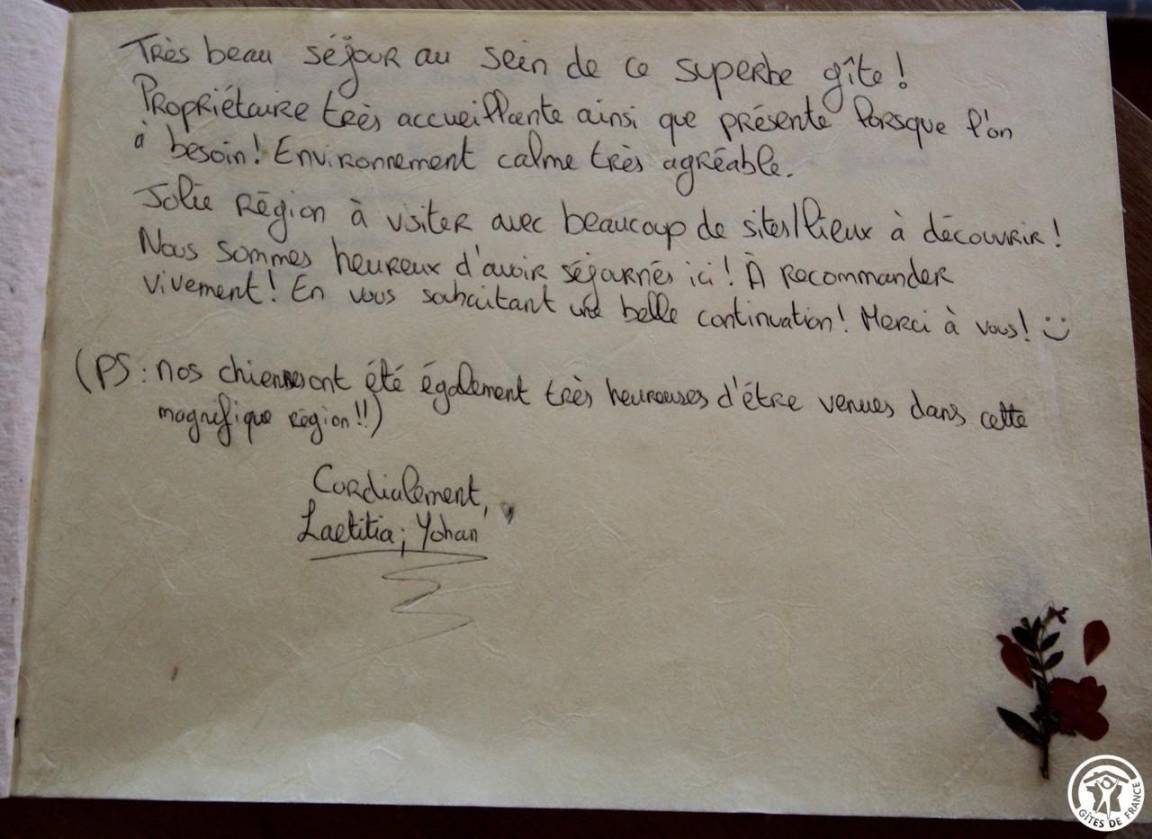 Très beau séjour au sein de ce superbe gîte !
Propriétaire très accueillante ainsi que présente lorsque l'on
à besoin ! Environnement calme très agréable.
Jolie Région à visiter avec beaucoup de sites/lieux à découvrir !
Nous sommes heureux d'avoir séjournés ici ! À recommander
vivement ! En vous souhaitant une belle continuation ! Merci à vous ! :)
(PS : nos chiennes ont été également très heureuses d'être venues dans cette
magnifique région !!)
Cordialement,
Laetitia ; Yohan
GÎTES DE FRANCE